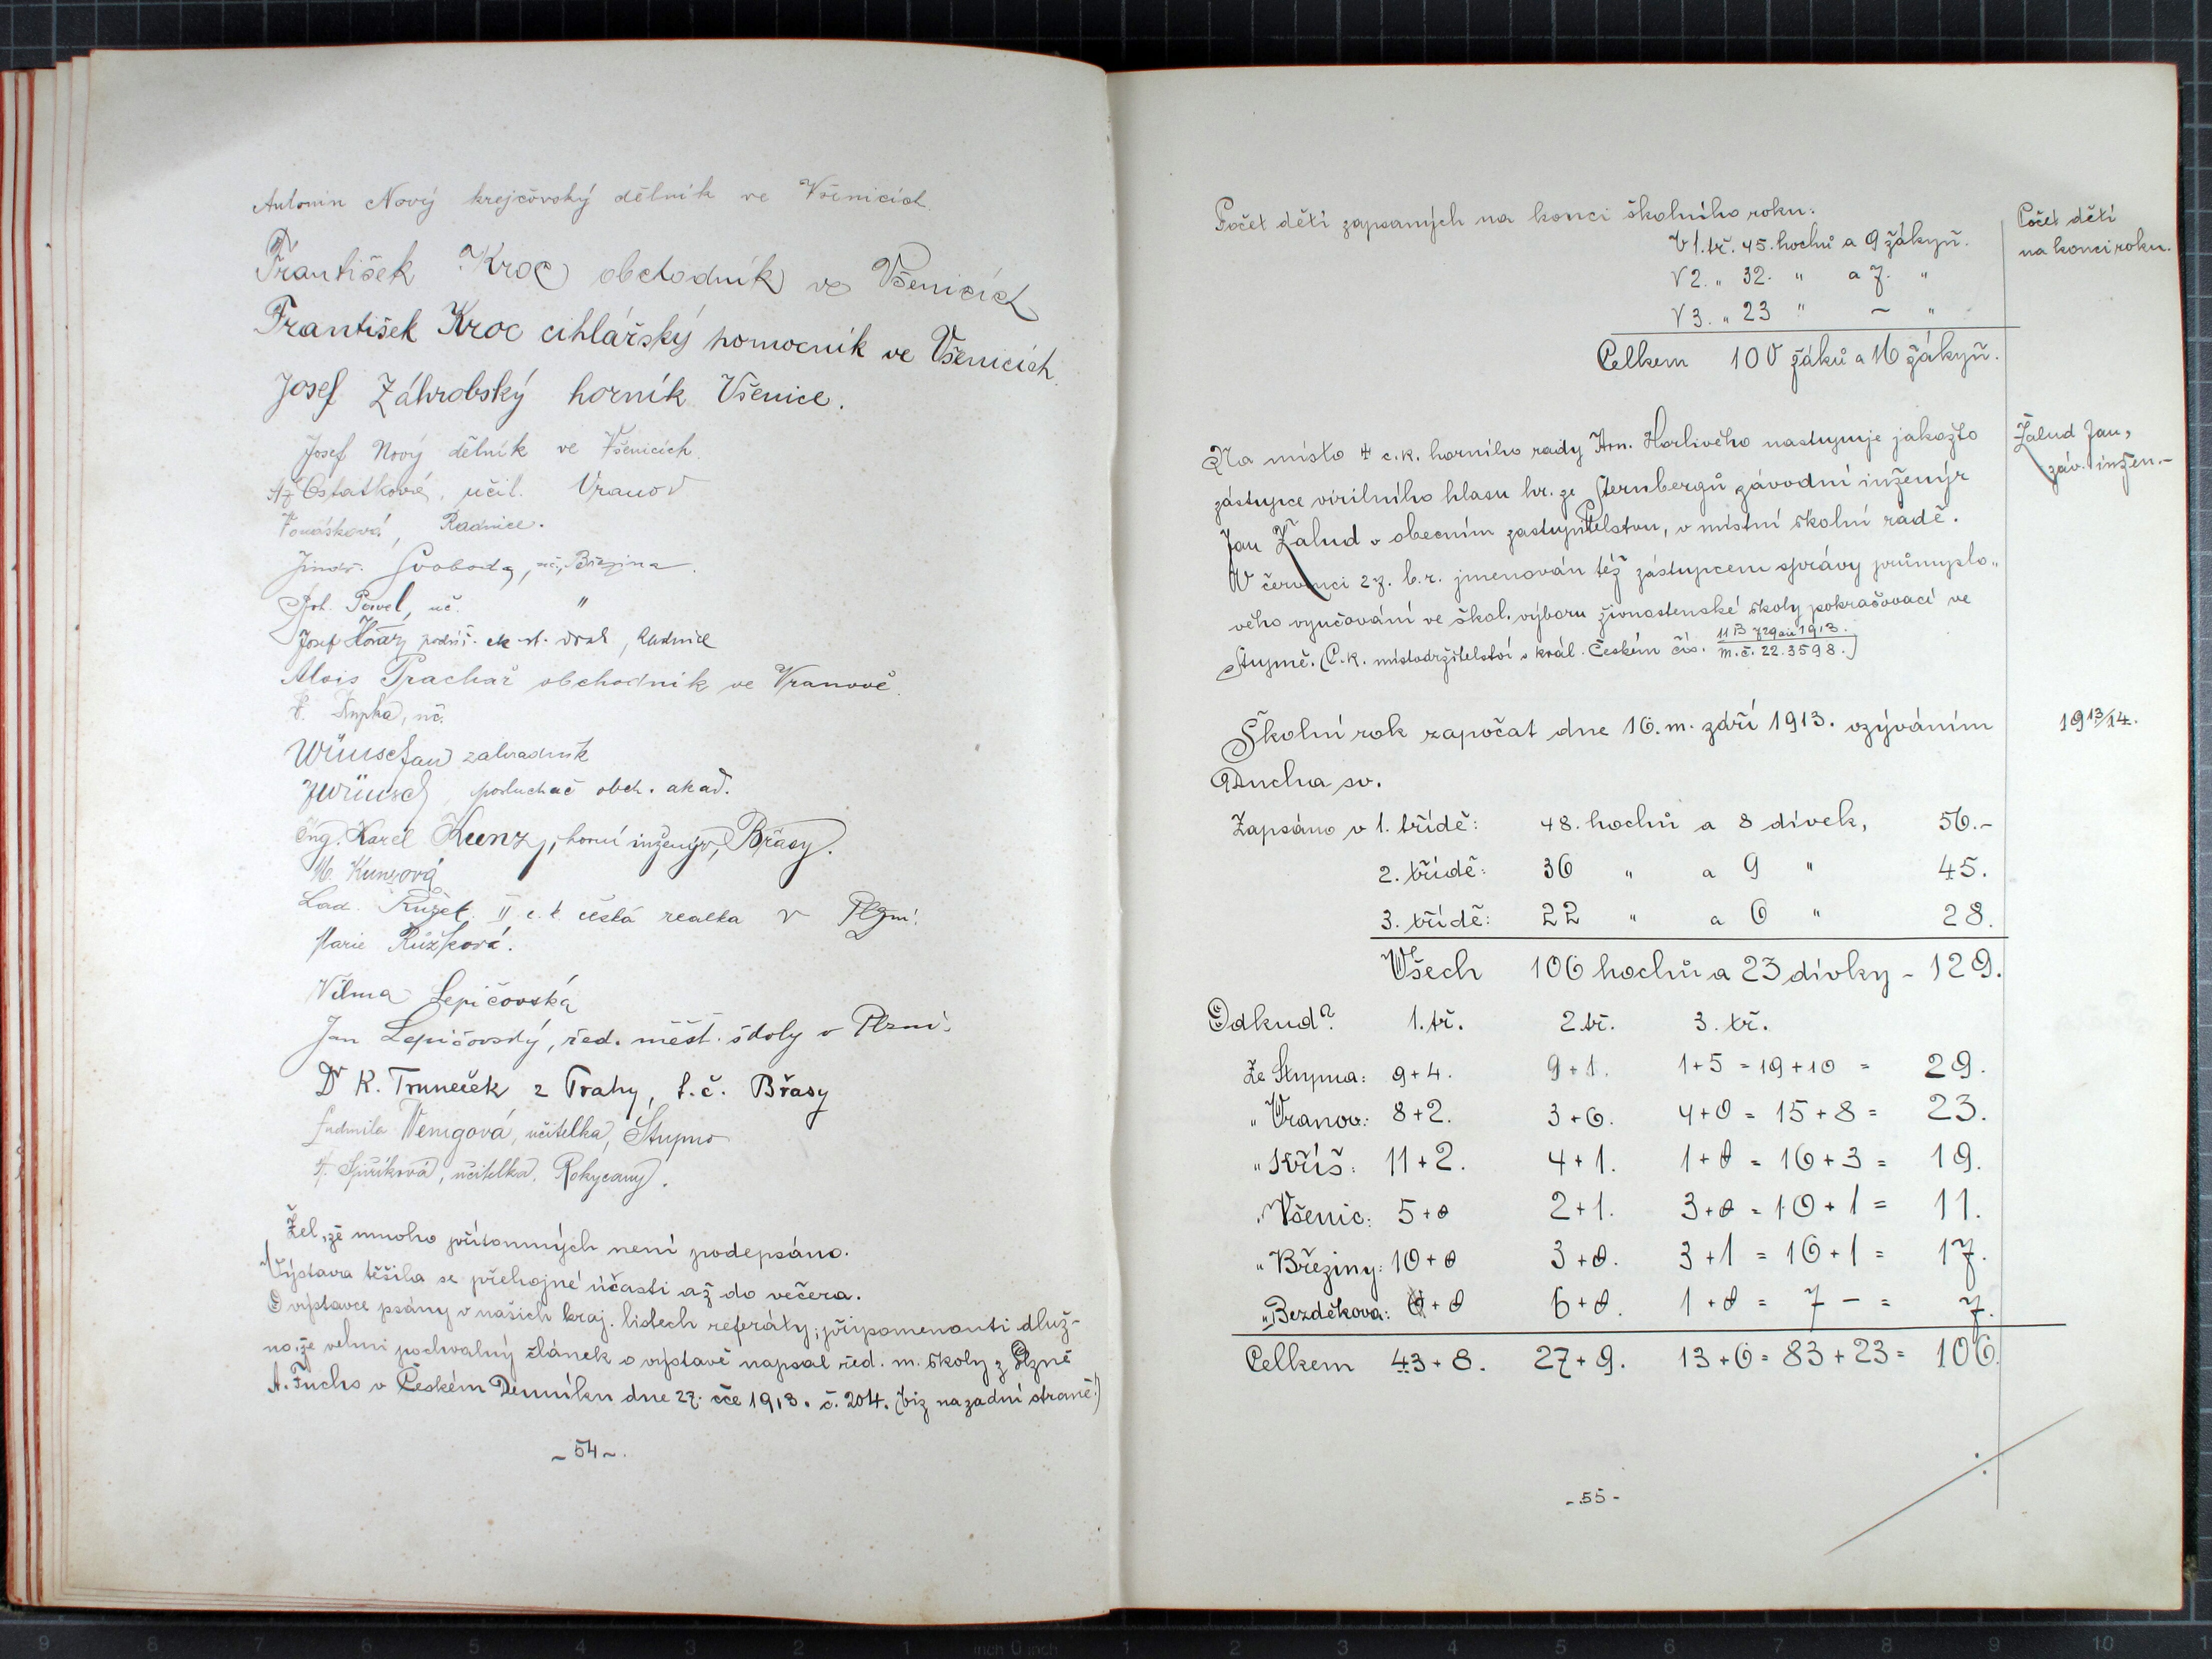 Antonín Nový krejčovský dělník ve Všenicích.
František Kroc obchodník ve Všenicích
František Kroc cihlářský pomocník ve Všenicích.
Josef Záhrobský horník Všenice.
Josef Nový dělník ve Všenicích.
Ostatková, učit. Vranov
Tomášková, Radnice.
Jindř. Svoboda, uč., Březina.
Ant. Pavel, uč. "
Josef podúř. Radnice
Alois Prachař obchodník ve Vranově.
Krupka, uč.
Wünsch zahradník
Wünsch, posluchač obch. akad.
Ing. Karel Kunz, horní inženýr, Břasy.
M. Kunzová
Lad. Růžek II c. k. česká realka v Plzni.
Marie Růžková.
Vilma Lepičovská
Jan Lepičovský, řed. měšť. školy v Plzni.
Dr K. Truneček z Prahy, t. č. Břasy
Ludmila Wenigová, učitelka, Stupno
A. učitelka, Rokycany.
Žel, že mnoho přítomných není podepsáno.
Výstava těšila se přehojné účasti až do večera.
O výstavce psány v našich kraj. listech referáty; připomenouti dluž-
no, že velmi pochvalný článek o výstavě napsal řed. m. školy z Plzně
A. Fuchs v Českém Denníku dne 27. čce 1913. č. 204. (viz na zadní straně!)
- 54 -.
Počet dětí zapsaných na konci školního roku:
V 1. tř. 45. hochů a 9 žákyň.
V 2. " 32. " a 7. "
V 3. " 23 " - "
Celkem 100 žáků a 16 žákyň.
Počet dětí
na konci roku.
Na místo † c. k. horního rady Ant. Horlivého nastupuje jakožto
zástupce virilního hlasu hr. ze Sternbergů závodní inženýr
Jan Žalud v obecním zastupitelstvu, v místní školní radě.
V červenci 27. b. r. jmenován též zástupcem správy průmyslo„
vého vyučování ve škol. výboru živnostenské školy pokračovací ve
Stupně. (C. k. místodržitelství v král. Českém čís. 11 B 729 ai 1913.
m. č. 22.3598.)
Žalud Jan,
záv. inžen.-
Školní rok započat dne 16. m. září 1913. vzýváním
Ducha sv.
1913/14.
Zapsáno v 1. třídě: 48. hochů a 8 dívek, 56.-
2. třídě: 36 " a 9 " 45.
3. třídě: 22 " a 6 " 28.
Všech 106 hochů a 23 dívky - 129.
Odkud? 1. tř. 2. tř. 3. tř.
Ze Stupna: 9+4. 9+1. 1+5 = 19+10 = 29.
" Vranov: 8+2. 3+6. 4+0 = 15+8 = 23.
" Kříš: 11+2. 4+1. 1+0 = 16+3 = 19.
" Všenic: 5+0 2+1. 3+0 = 10+1 = 11.
" Březiny: 10+0 3+0. 3+1 = 16+1 = 17.
" Bezděkova: 0+0 6+0. 1+0 = 7 - = 7.
Celkem 43+8. 27+9. 13+6 = 83+23 = 106.
- 55 -